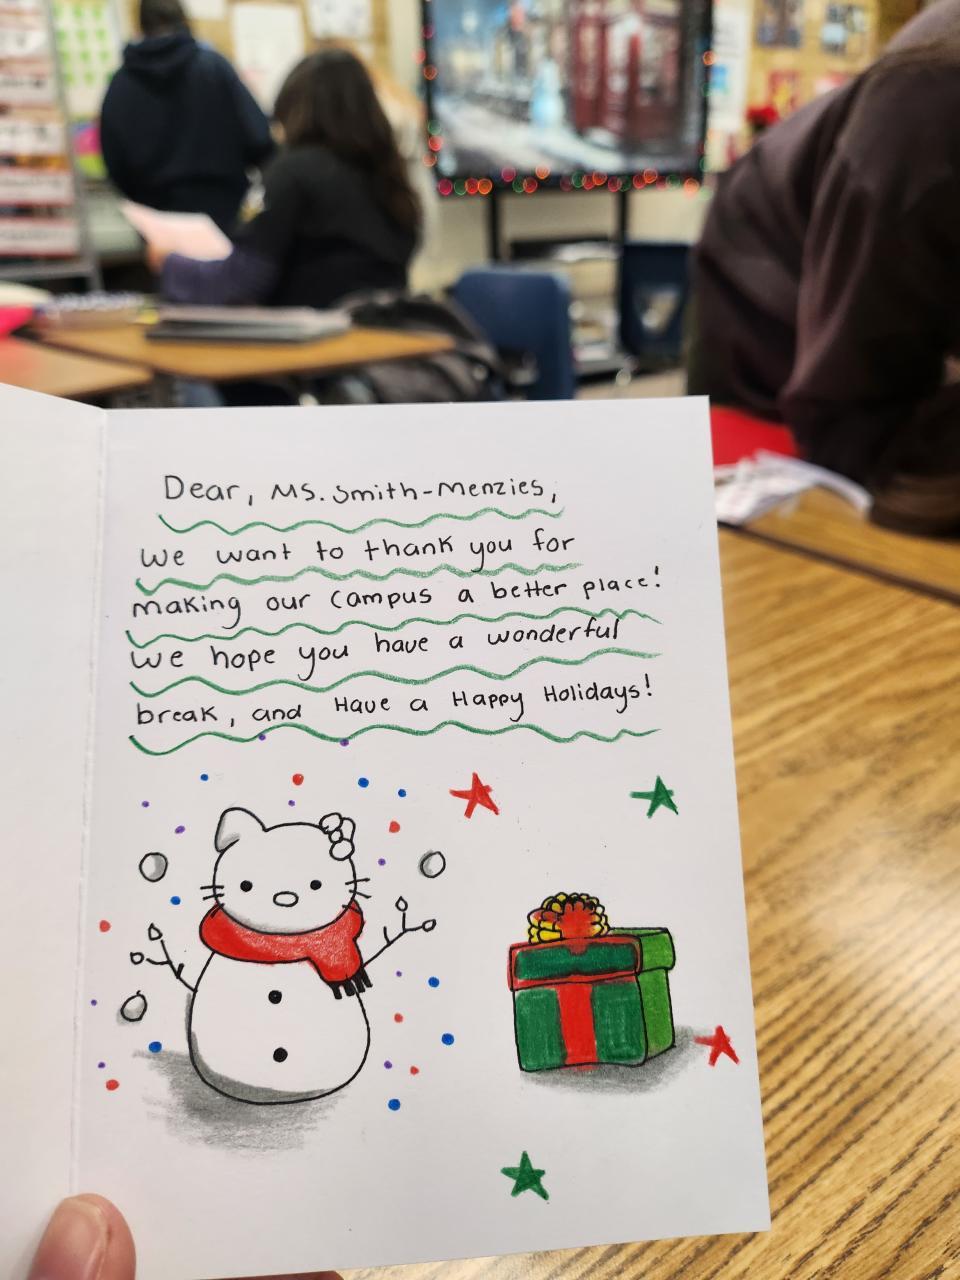 Dear, Ms. Smith-Menzies,
We want to thank you for
making our campus a better place!
We hope you have a wonderful
break, and Have a Happy Holidays!